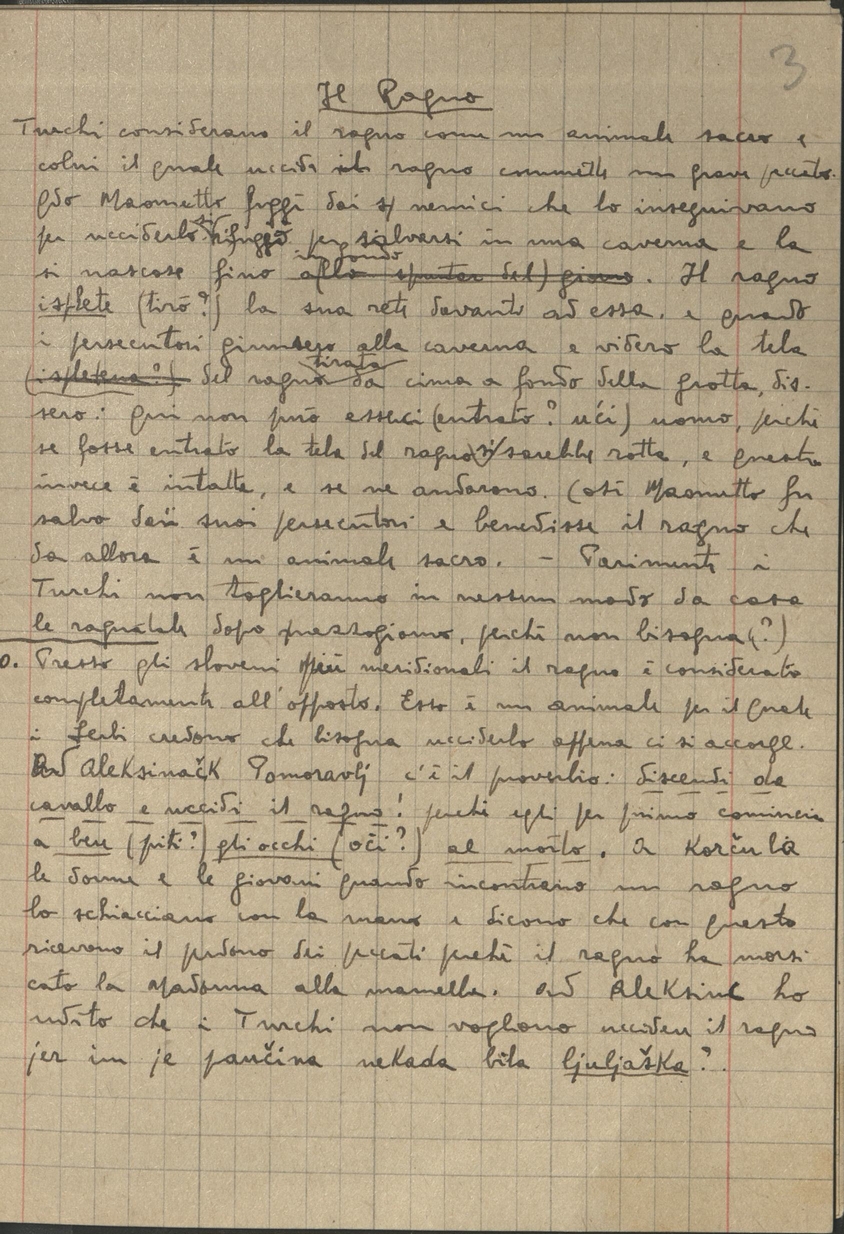 3
Il Ragno
Turchi considerano il ragno come un animale sacro e
colui il quale uccide il ragno commette un grave peccato.
Qdo Maometto fuggì dai s) nemici che lo inseguivano
per ucciderlo si rifuggiò per salversi in una caverna e la
in fondo
si nascose fino allo spuntar del) giorno. Il ragno
isplete (tirò?) la sua rete davanti ad essa. e quando
i persecutori giunsero alla caverna e videro la tela
tirata
(ispletena?) del ragno da cima a fondo della grotta, dis-
sero: qui non può esserci (entrato? ući) uomo, perchè
se fosse entrato la tela del ragno si sarebbe rotta, e questa
invece è intatta, e se ne andarono. Così Maometto fu
salvo dai suoi persecutori e benedisse il ragno che
da allora è un animale sacro. - Parimenti i
Turchi non toglieranno in nessun modo da casa
le ragnatele dopo mezzogiorno, perchè non bisogna (?)
o. Presso gli sloveni più meridionali il ragno è considerato
completamente all'opposto. Esso è un animale per il quale
i Serbi credono che bisogna ucciderlo appena ci si accorge.
Ad Aleksinačk Pomoravlj c'è il proverbio: discendi da
cavallo e uccidi il ragno! perchè egli per primo comincia
a bere (piti?) gli occhi (oči?) al morto. A Korčula
le donne e le giovani quando incontrano un ragno
lo schiacciano con la mano e dicono che con questo
ricevono il perdono dei peccati perchè il ragno ha morsi
cato la Madonna alla mamella. Ad Aleksinc ho
udito che i Turchi non vogliono uccidere il ragno
jer im je paučina nekada bila ljuljaška?.